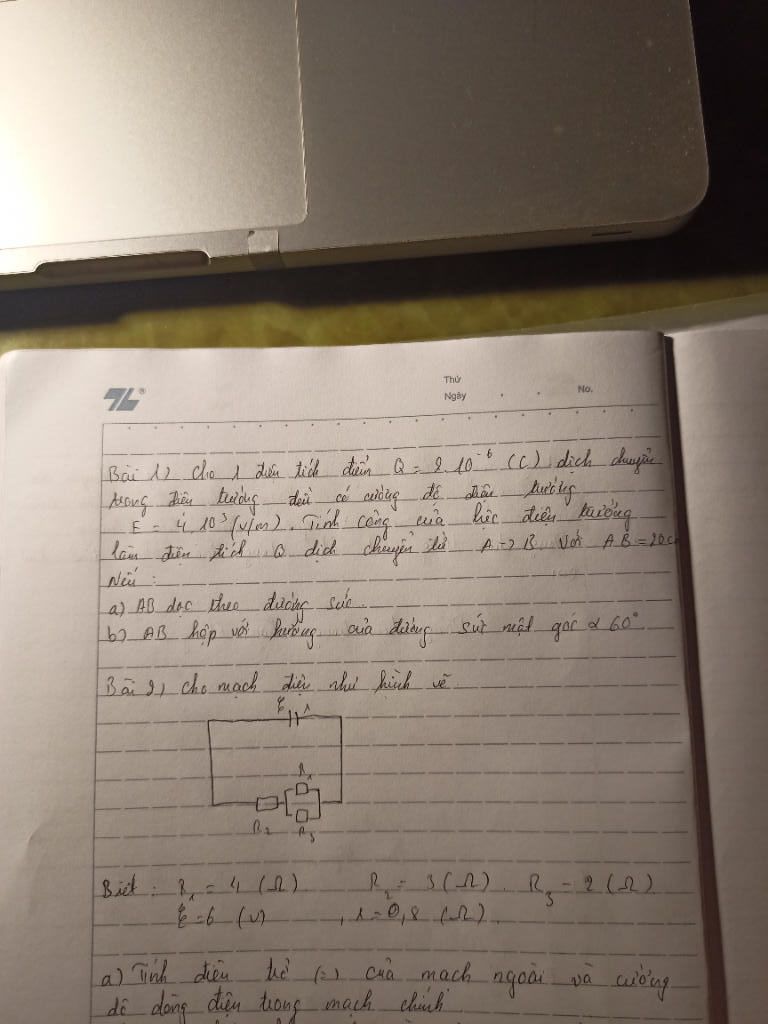 Thứ
Ngày . . No.
Bài 1) Cho 1 điện tích điểm Q = 2 10⁻⁶ (C) dịch chuyển
trong điện trường đều có cường độ điện trường
E = 4 10³ (v/m). Tính công của lực điện trường
làm điện tích Q dịch chuyển từ A -> B với AB = 20c
Nếu :
a) AB dọc theo đường sức.
b) AB hợp với hướng của đường sức một góc α 60°
Bài 2) cho mạch điện như hình vẽ
ℰ r
R₁
R₂ R₃
Biết : R₁ = 4 (Ω) R₂ = 3 (Ω). R₃ = 2 (Ω)
ℰ = 6 (v) , r = 0,8 (Ω).
a) Tính điện trở (=) của mạch ngoài và cường
độ dòng điện trong mạch chính